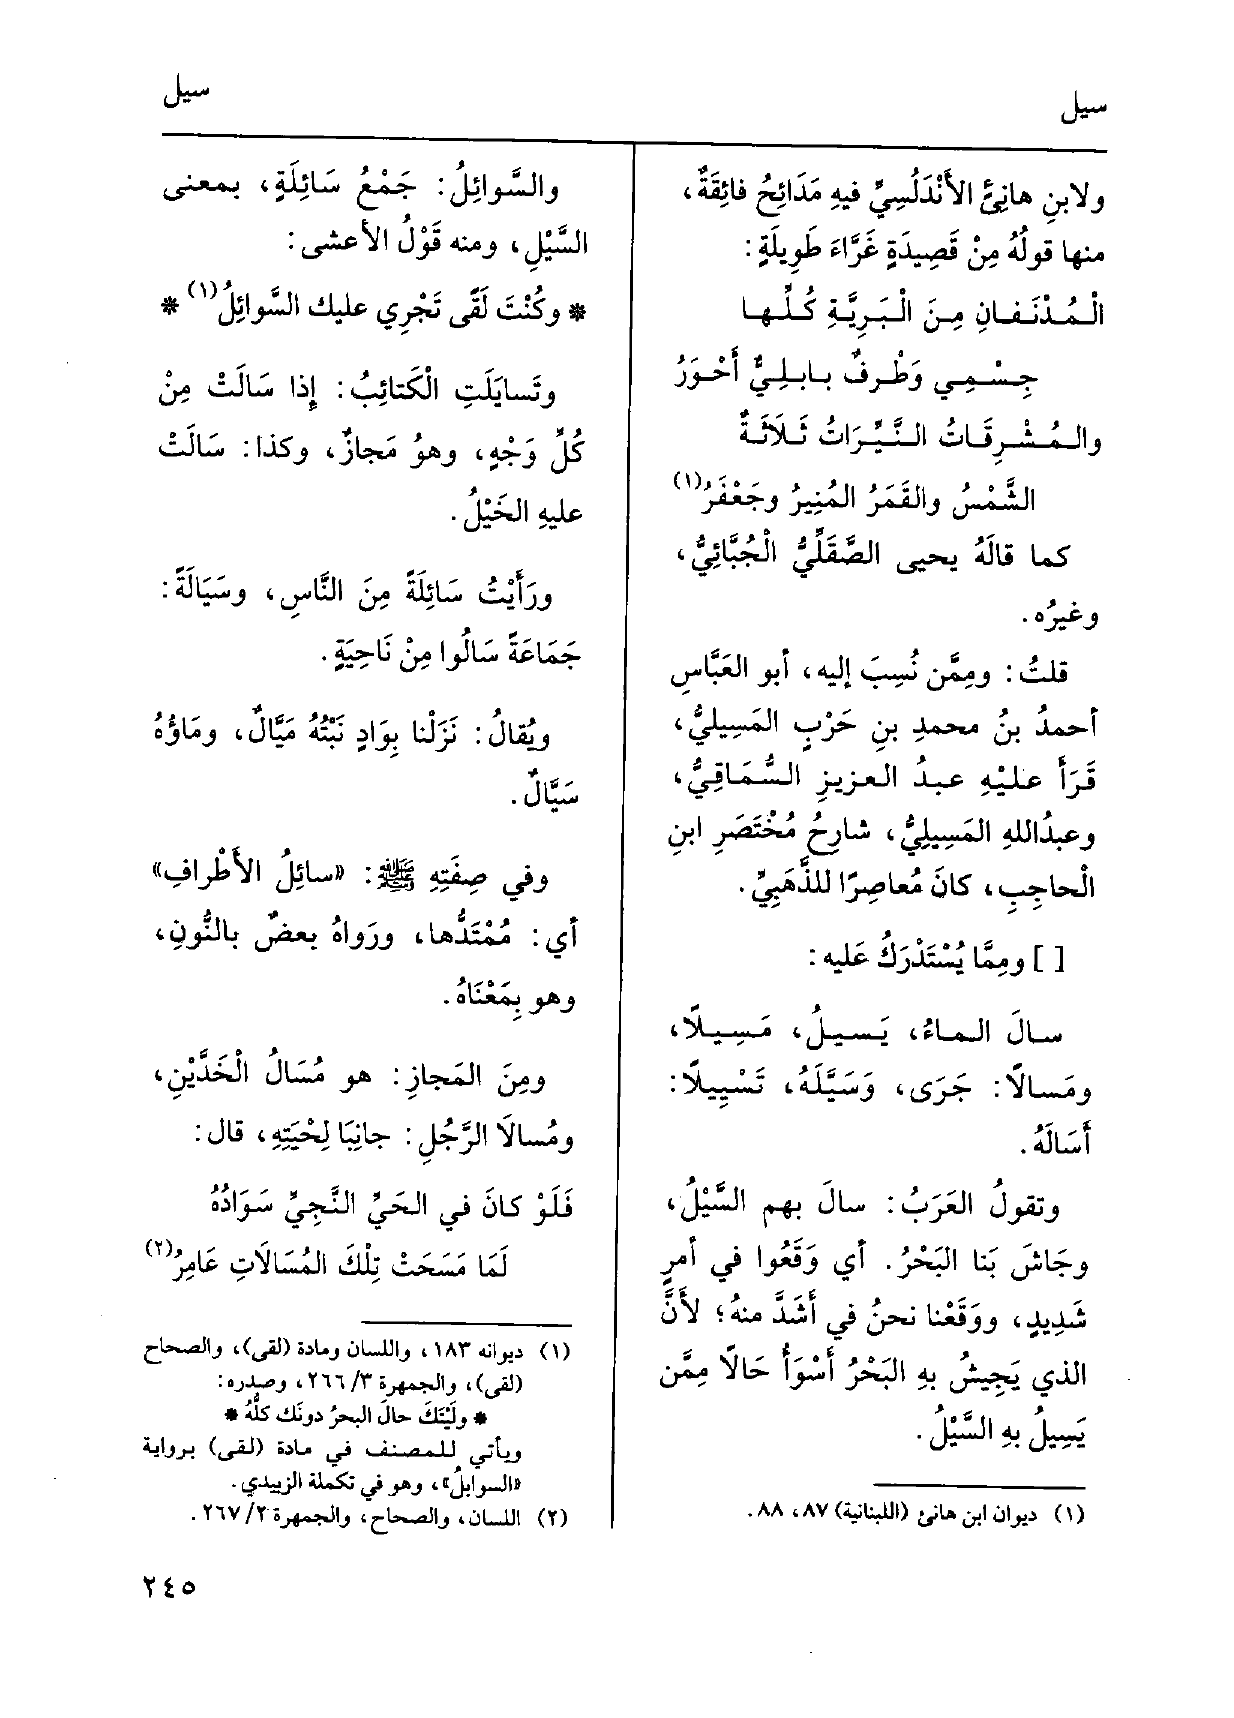 سيل
سيل
ولابنِ هانِئٍ الأَنْدَلُسِيِّ فيهِ مَدَائِحُ فائِقَةٌ،
منها قولُهُ مِنْ قَصِيدَةٍ غَرَّاءَ طَوِيلَةٍ:
الْمُدْنَفانِ مِنَ الْبَرِيَّةِ كُلِّها
جِسْمِي وَطْرفٌ بابلِيٌّ أَحْوَرُ
والمُشْرِقَاتُ النَّيِّرَاتُ ثَلاَثَةٌ
الشَّمْسُ والقَمَرُ المُنِيرُ وجَعْفَرُ(١)
كما قالَهُ يحيى الصَّقَلِّيُّ الْجُبَّائِيُّ،
وغيرُه.
قلتُ: ومِمَّن نُسِبَ إليه، أبو العَبَّاسِ
أحمدُ بنُ محمدِ بنِ حَرْبٍ المَسِيلِيُّ،
قَرَأَ عليْهِ عبدُ العزيزِ السُّمَاقِيُّ،
وعبدُاللهِ المَسِيلِيُّ، شارِحُ مُخْتَصَرِ ابنِ
الْحاجِبِ، كانَ مُعاصِرًا للذَّهَبِيِّ.
[ ] ومِمَّا يُسْتَدْرَكُ عليه:
سالَ الماءُ، يَسيلُ، مَسِيلاً،
ومَسالاً: جَرَى، وَسَيَّلَهُ، تَسْيِيلاً:
أَسَالَهُ.
وتقولُ العَرَبُ: سالَ بهم السَّيْلُ،
وجَاشَ بَنا البَحْرُ. أي وَقَعُوا في أمرٍ
شَدِيدٍ، ووَقَعْنا نحنُ في أَشَدَّ منهُ؛ لأَنَّ
الذي يَجِيشُ بهِ البَحْرُ أَسْوَأُ حَالاً مِمَّن
يَسِيلُ بهِ السَّيْلُ.
(١) ديوان ابن هانئ (اللبنانية) ٨٧، ٨٨.
والسَّوائِلُ: جَمْعُ سَائِلَةٍ، بمعنى
السَّيْلِ، ومنه قَوْلُ الأعشى:
* وكُنْتَ لَقًى تَجْرِي عليك السَّوائِلُ(١) *
وتَسايَلَتِ الْكَتائِبُ: إِذا سَالَتْ مِنْ
كُلِّ وَجْهٍ، وهوُ مَجازٌ، وكذا: سَالَتْ
عليهِ الخَيْلُ.
ورَأَيْتُ سَائِلَةً مِنَ النَّاسِ، وسَيَالَةً:
جَمَاعَةً سَالُوا مِنْ نَاحِيَةٍ.
ويُقالُ: نَزَلْنا بِوَادٍ نَبْتُهُ مَيَّالٌ، ومَاؤُهُ
سَيَّالٌ.
وفي صِفَتِهِ ﷺ: «سائِلُ الأَطْرافِ»
أي: مُمْتَدُّها، ورَواهُ بعضٌ بالنُّونِ،
وهو بِمَعْنَاهُ.
ومِنَ المَجازِ: هو مُسَالُ الْخَدَّيْنِ،
ومُسالاَ الرَّجُلِ: جانِبَا لِحْيَتِهِ، قال:
فَلَوْ كانَ في الحَيِّ النَّجِيِّ سَوَادُهُ
لَمَا مَسَحَتْ تِلْكَ المُسَالاَتِ عَامِرُ(٢)
(١) ديوانه ١٨٣، واللسان ومادة (لقى)، والصحاح
(لقى)، والجمهرة ٢٦٦/٣، وصدره:
* ولَيْتَكَ حالَ البحرُ دونَك كلُّهُ *
ويأتي للمصنف في مادة (لقى) برواية
«السوابلُ»، وهو في تكملة الزبيدي.
(٢) اللسان، والصحاح، والجمهرة ٢٦٧/٢.
٢٤٥